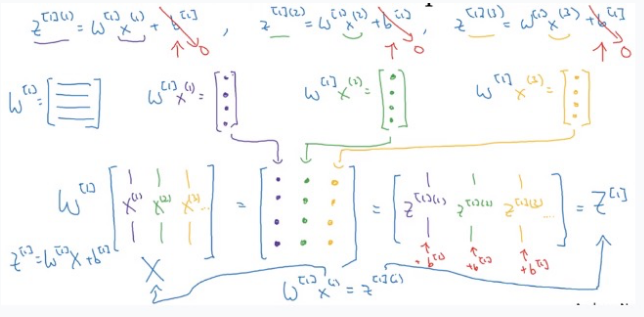 z^{[1](1)} = W^{[1]} x^{(1)} + b^{[1]} → 0 , z^{[1](2)} = W^{[1]} x^{(2)} + b^{[1]} → 0 , z^{[1](3)} = W^{[1]} x^{(3)} + b^{[1]} → 0
W^{[1]} = [ ] W^{[1]} x^{(1)} = [ ] W^{[1]} x^{(2)} = [ ] W^{[1]} x^{(3)} = [ ]
W^{[1]} [ x^{(1)} x^{(2)} x^{(3)} ... ] = [ ] = [ z^{[1](1)} z^{[1](2)} z^{[1](3)} ... ] = Z^{[1]}
+b^{[1]} +b^{[1]} +b^{[1]}
Z^{[1]} = W^{[1]} X + b^{[1]}
X
W^{[1]} x^{(i)} = z^{[1](i)}